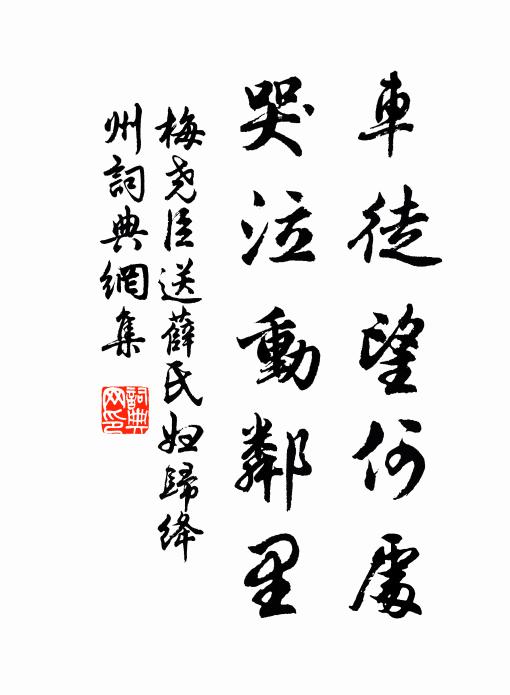 車徒望何處
哭泣動鄰里
梅尧臣送薛氏婦歸绛
州詞典網集
詞典
网印